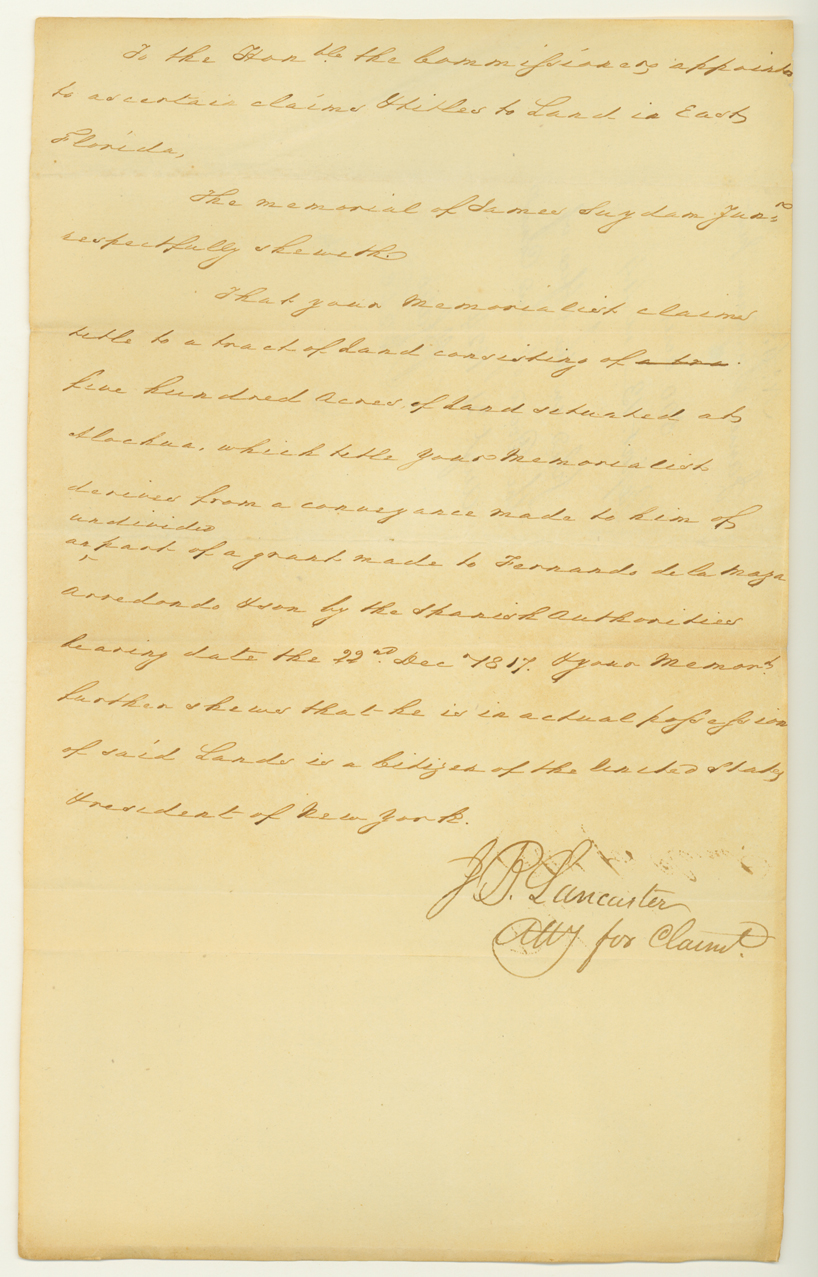 To the Honble the Commissioners appointed
to ascertain claims & titles to Land in East
Florida,
The memorial of James Suydam Junr
respectfully sheweth
That your Memorialist claims
title to a tract of Land consisting of a tra
five hundred Acres of Land situated at
Alachua, which title your Memorialist
derives from a conveyance made to him of
undivided
an part of a grant made to Fernando de la Maza
Arredondo & son by the Spanish Authorities
bearing date the 22nd Decr 1817. & your Memort
further shews that he is in actual possession
of said Lands is a Citizen of the United States
& resident of New York.
J B. Lancaster
Atty for Claimt.